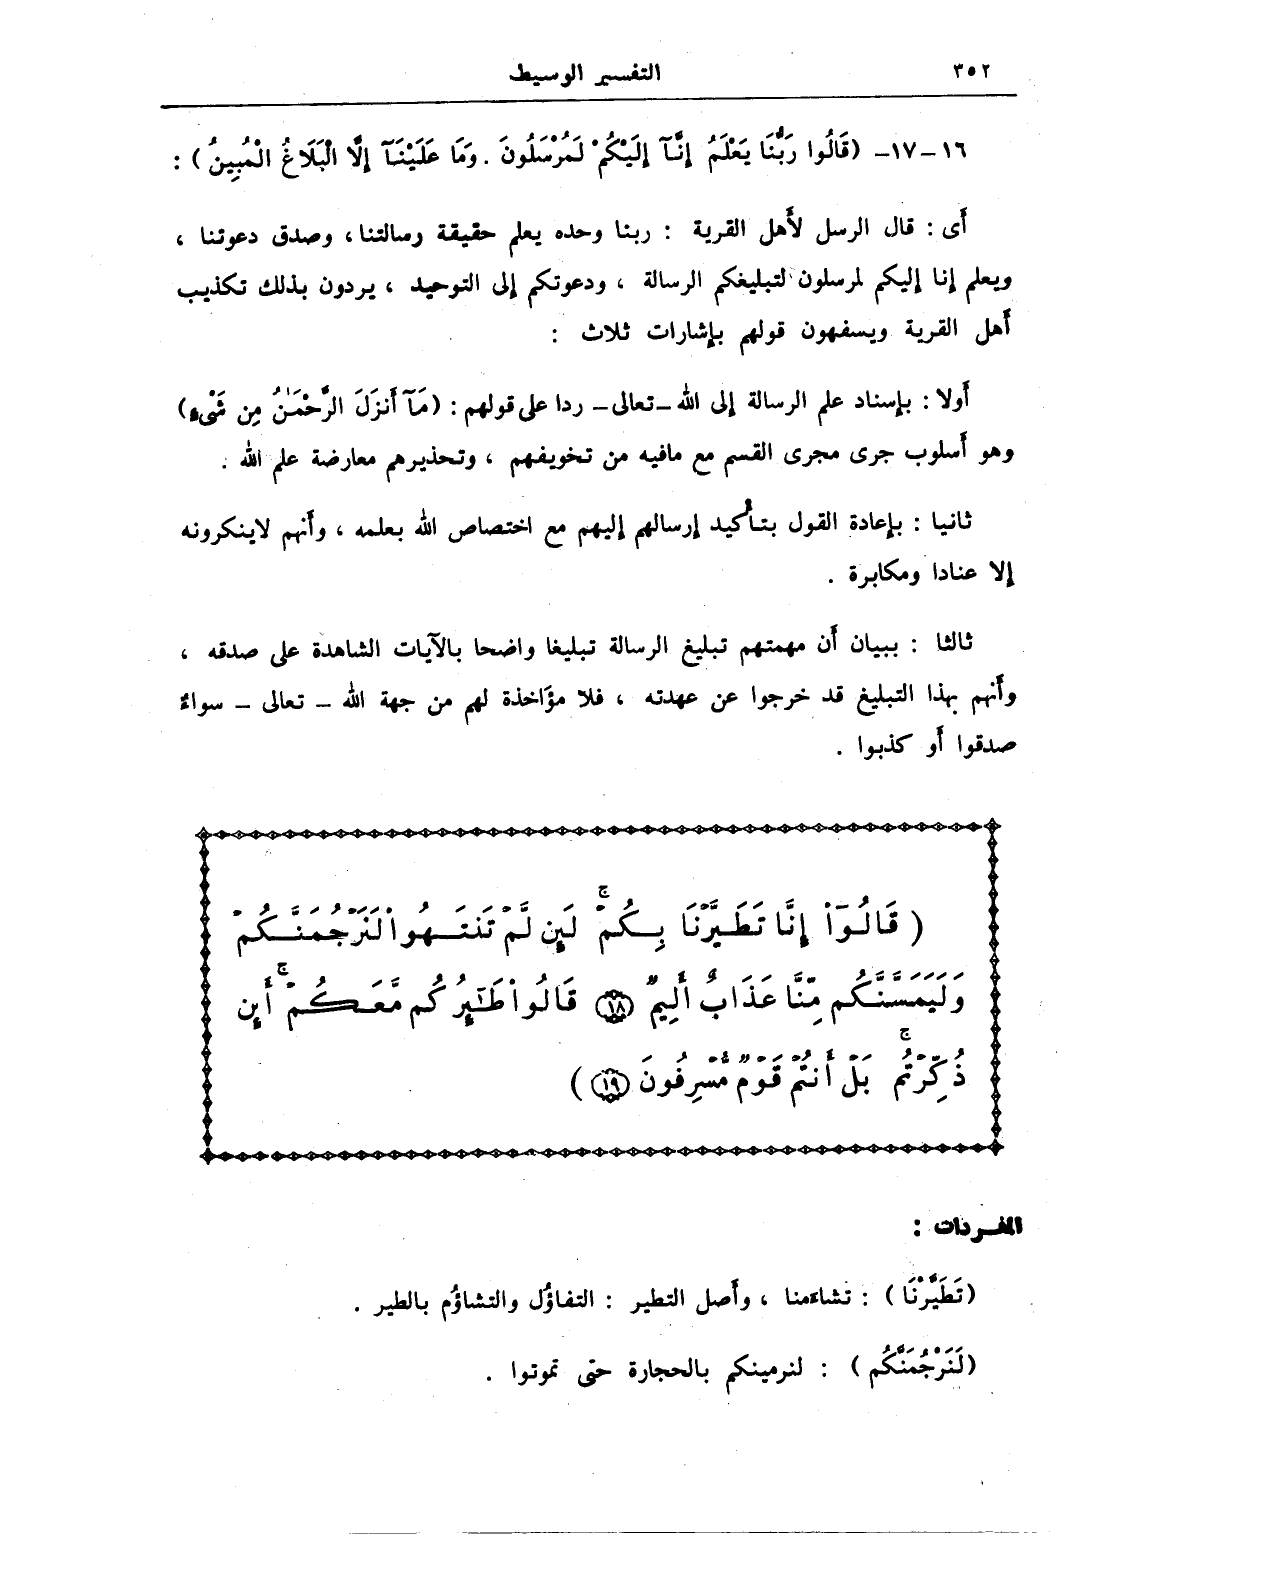 ٣٥٢
التفسير الوسيط
١٦ – ١٧ – (قَالُوا رَبُّنَا يَعْلَمُ إِنَّآ إِلَيْكُمْ لَمُرْسَلُونَ . وَمَا عَلَيْنَآ إِلَّا الْبَلَاغُ الْمُبِينُ) :
أَى : قال الرسل لأَهل القرية : ربنا وحده يعلم حقيقة رسالتنا ، وصدق دعوتنا ،
ويعلم إنا إليكم لمرسلون لتبليغكم الرسالة ، ودعوتكم إلى التوحيد ، يردون بذلك تكذيب
أَهل القرية ويسفهون قولهم بإشارات ثلاث :
أَولا : بإسناد علم الرسالة إلى الله – تعالى – ردا على قولهم : (مَآ أَنزَلَ الرَّحْمَـٰنُ مِن شَىْءٍ)
وهو أَسلوب جرى مجرى القسم مع مافيه من تخويفهم ، وتحذيرهم معارضة علم الله .
ثانيا : بإعادة القول بتأكيد إرسالهم إليهم مع اختصاص الله بعلمه ، وأَنهم لاينكرونه
إلا عنادا ومكابرة .
ثالثا : ببيان أَن مهمتهم تبليغ الرسالة تبليغا واضحا بالآيات الشاهدة على صدقه ،
وأَنهم بهذا التبليغ قد خرجوا عن عهدته ، فلا مؤَاخذة لهم من جهة الله – تعالى – سواءٌ
صدقوا أَو كذبوا .
( قَالُوٓا۟ إِنَّا تَطَيَّرْنَا بِكُمْ ۖ لَئِن لَّمْ تَنتَهُوا۟ لَنَرْجُمَنَّكُمْ
وَلَيَمَسَّنَّكُم مِّنَّا عَذَابٌ أَلِيمٌ ١٨ قَالُوا۟ طَـٰٓئِرُكُم مَّعَكُمْ ۚ أَئِن
ذُكِّرْتُم ۚ بَلْ أَنتُمْ قَوْمٌ مُّسْرِفُونَ ١٩ )
المفردات :
(تَطَيَّرْنَا) : تشاءمنا ، وأَصل التطير : التفاؤُل والتشاؤُم بالطير .
(لَنَرْجُمَنَّكُم) : لنرمينكم بالحجارة حتى تموتوا .